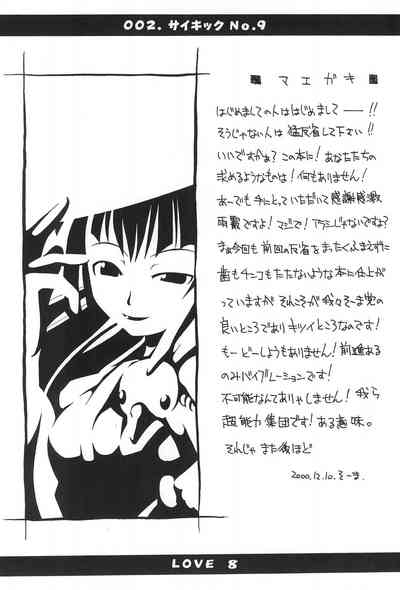 002. サイキック No.9
マエガキ
はじめましての人ははじめまして──!!
そうじゃない人は猛反省して下さい!!
いいですかぁ?この本に!あなたたちの
求めるようなものは!何もありません!
あーでも手にとっていただいて感謝感激
雨霰ですよ!マジで!アラシじゃないですよ?
まぁ今回も前回の反省をまったくふまえずに
歯もチンコもたたないような本に仕上が
っていますが そんころが我らそーま党の
良いところでありキツイところなのです!
もーどーしようもありません!前進ある
のみバイブレーションです!
不可能なんてありゃしません!我ら
超能力集団です!ある意味。
それじゃ また後ほど
2000.12.10. そーま.
LOVE 8